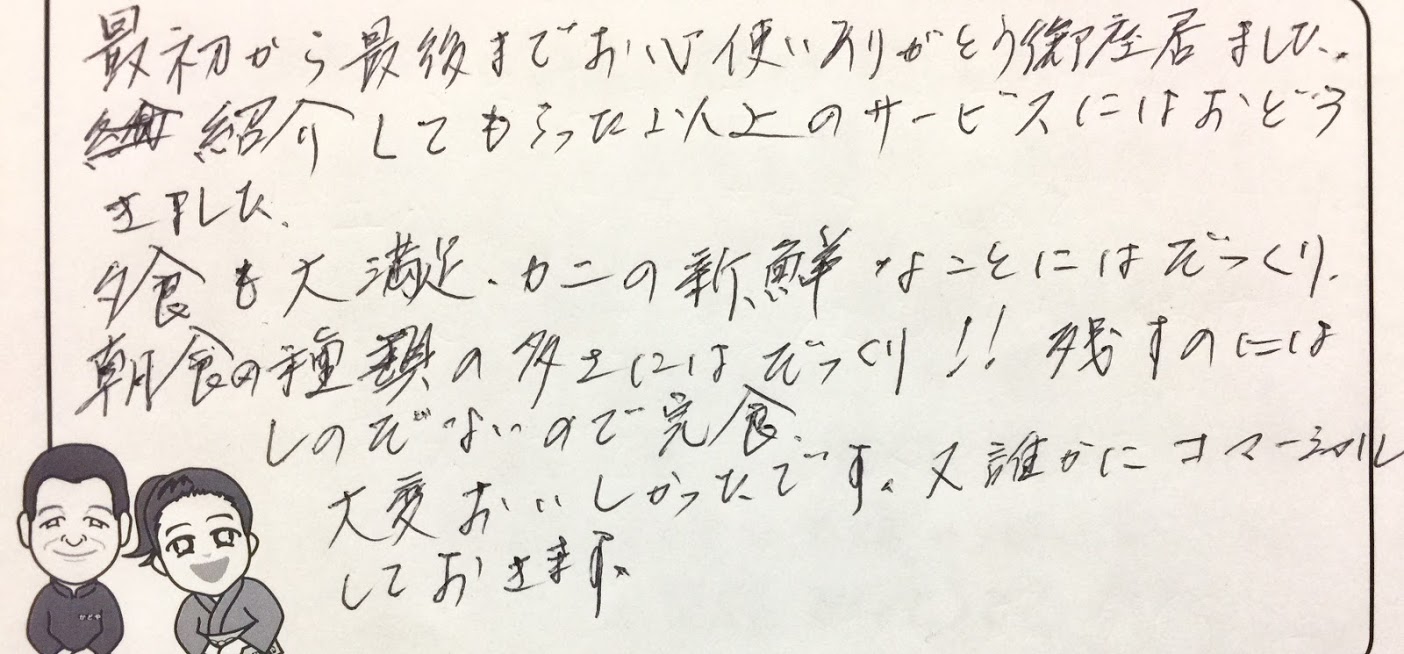 最初から最後までお心使いありがとう御座居ました。
紹介してもらった以上のサービスにはおどろ
きました。
夕食も大満足、カニの新鮮なことにはびっくり、
朝食の種類の多さにはびっくり!! 残すのには
しのびないので完食、
大変おいしかったです、又誰かにコマーシャル
しておきます。
かどや